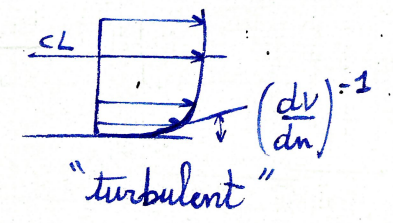 CL
(dv/dn)^-1
"turbulent"